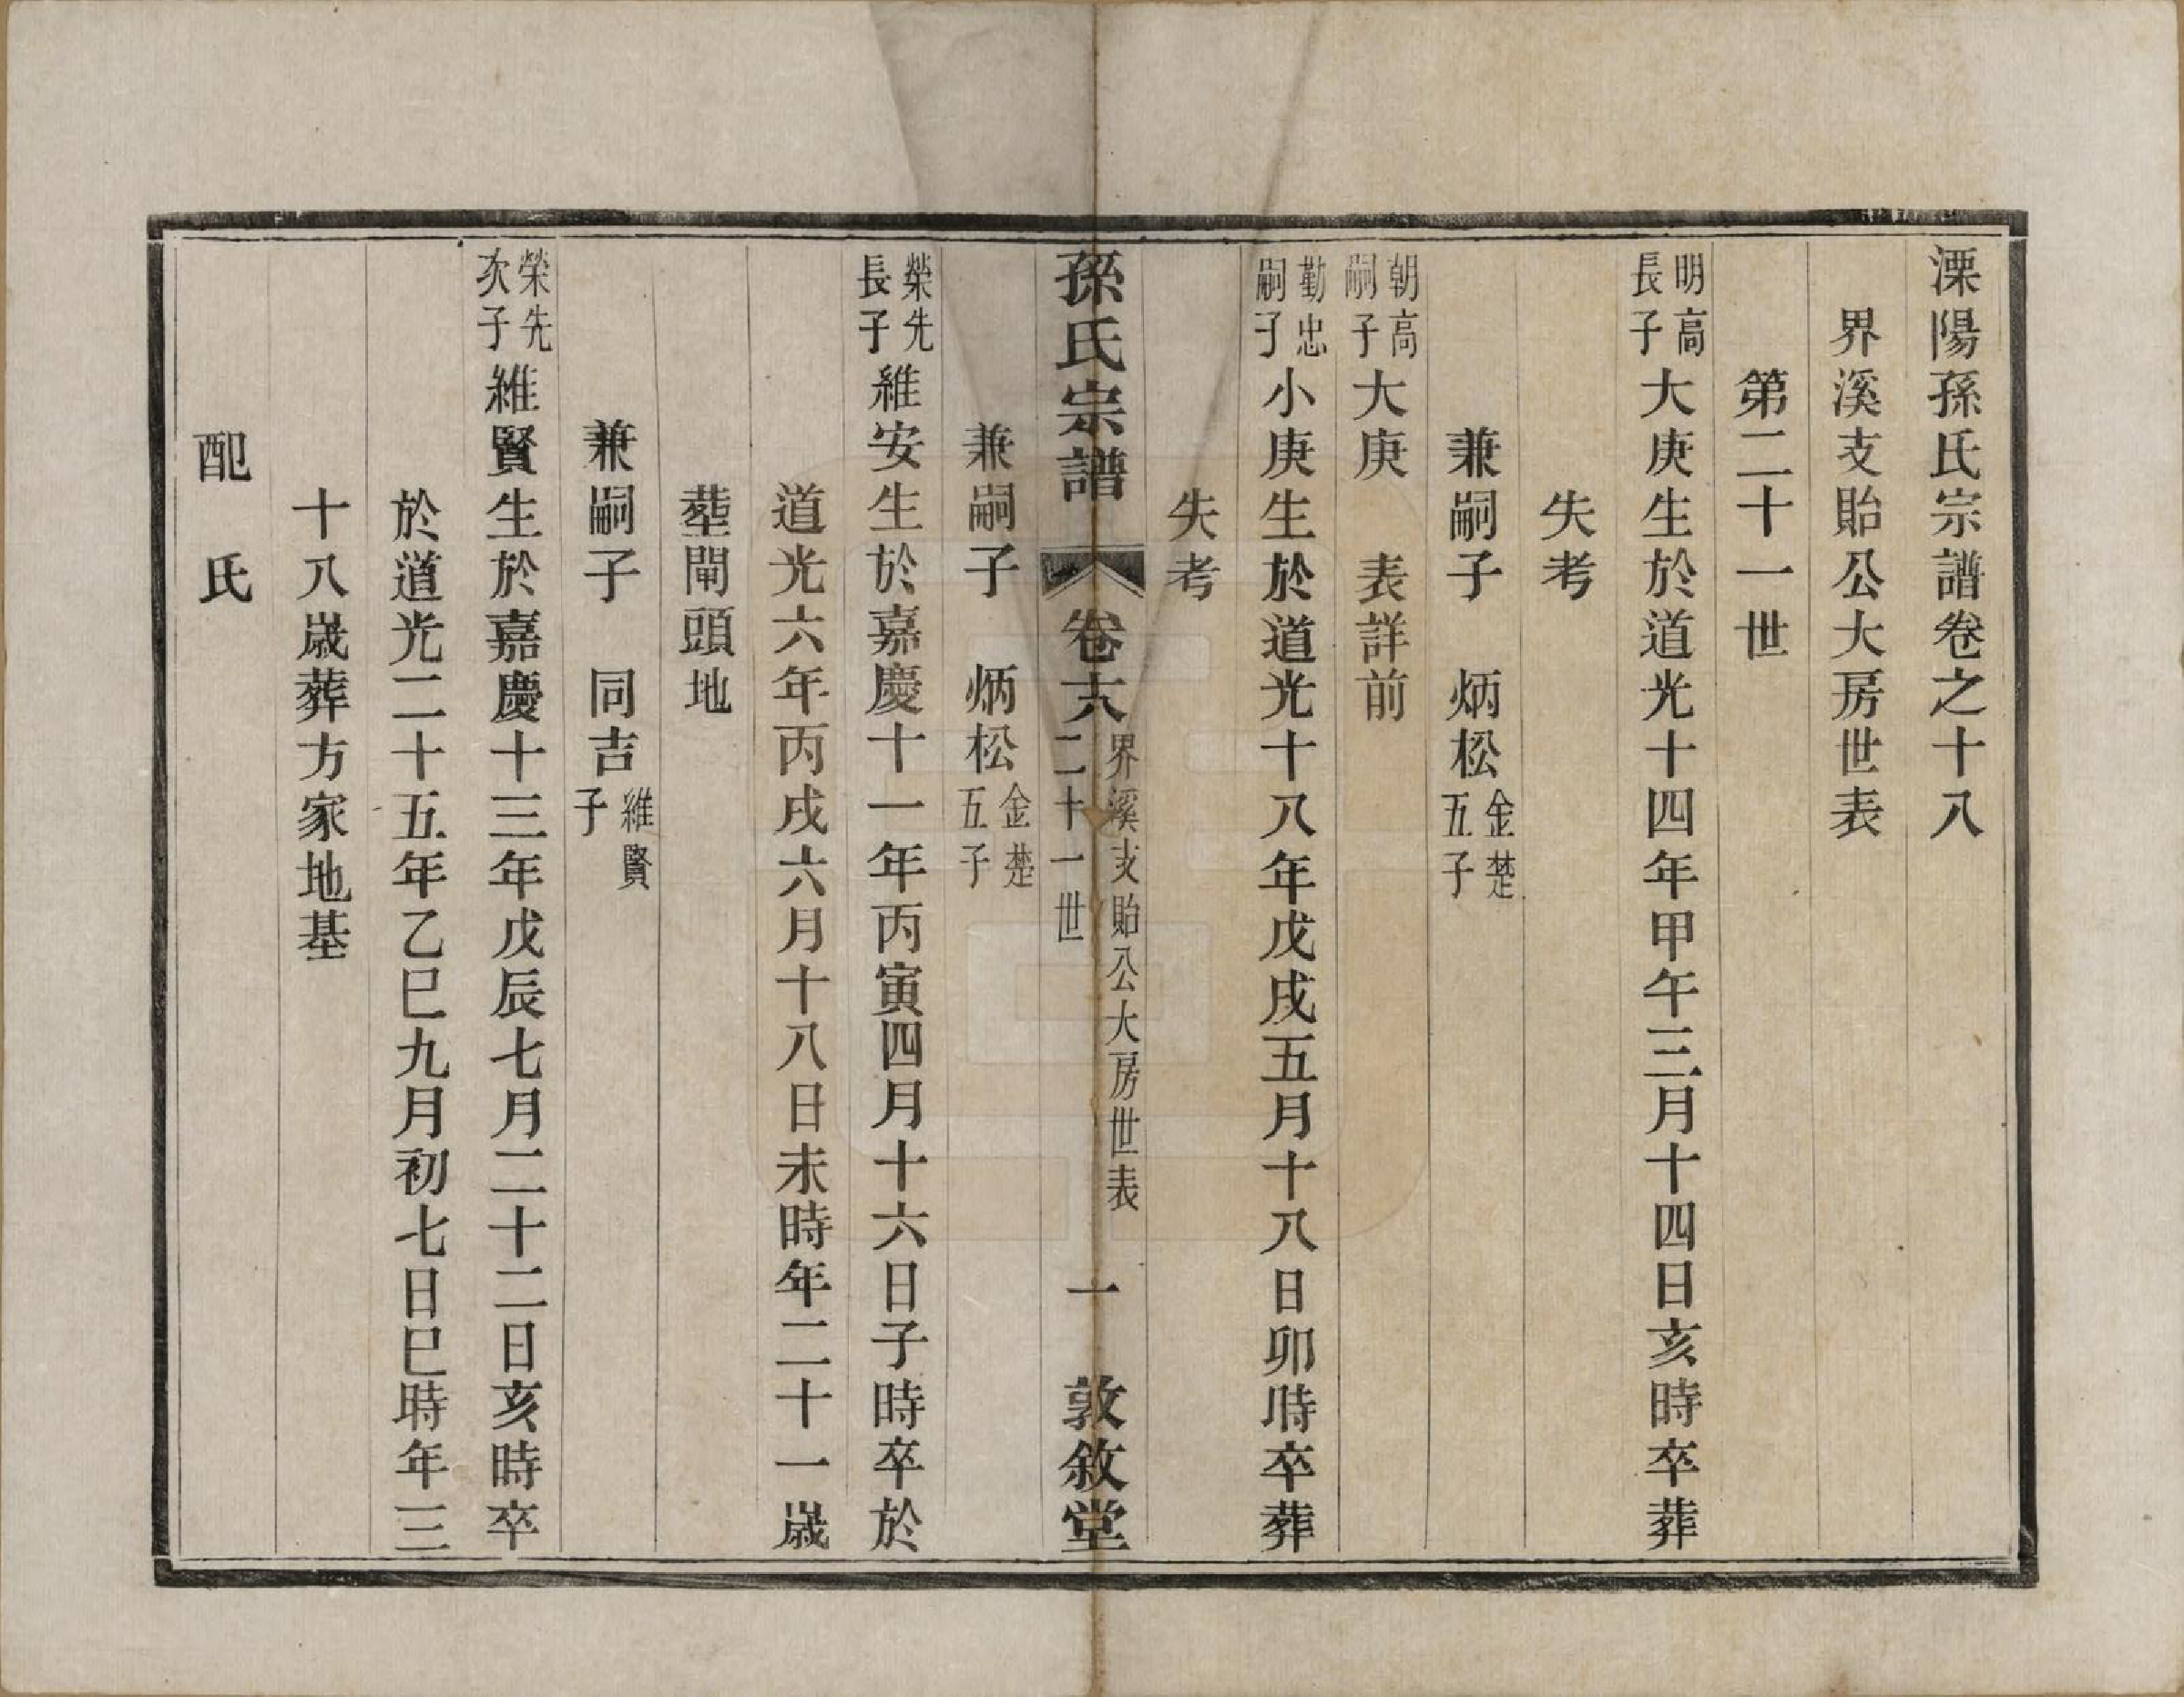 溧陽孫氏宗譜卷之十八
界溪支貽公大房世表
第二十一世
明高長子大庚生於道光十四年甲午三月十四日亥時卒葬
失考
兼嗣子　炳松金楚五子
朝高嗣子大庚　表詳前
勤忠嗣子小庚生於道光十八年戊戌五月十八日卯時卒葬
失考
孫氏宗譜　卷十八　界溪支貽公大房世表　二十一世　一　敦敘堂
兼嗣子　炳松金楚五子
榮先長子維安生於嘉慶十一年丙寅四月十六日子時卒於
道光六年丙戌六月十八日未時年二十一歲
塟閘頭地
兼嗣子　同吉維賢子
榮先次子維賢生於嘉慶十三年戊辰七月二十二日亥時卒
於道光二十五年乙巳九月初七日巳時年三
十八歲葬方家地基
配　氏